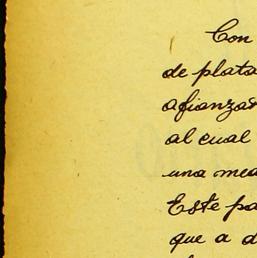 Con
de plata
afianzar
al cual
una mea
Este pa
que a d